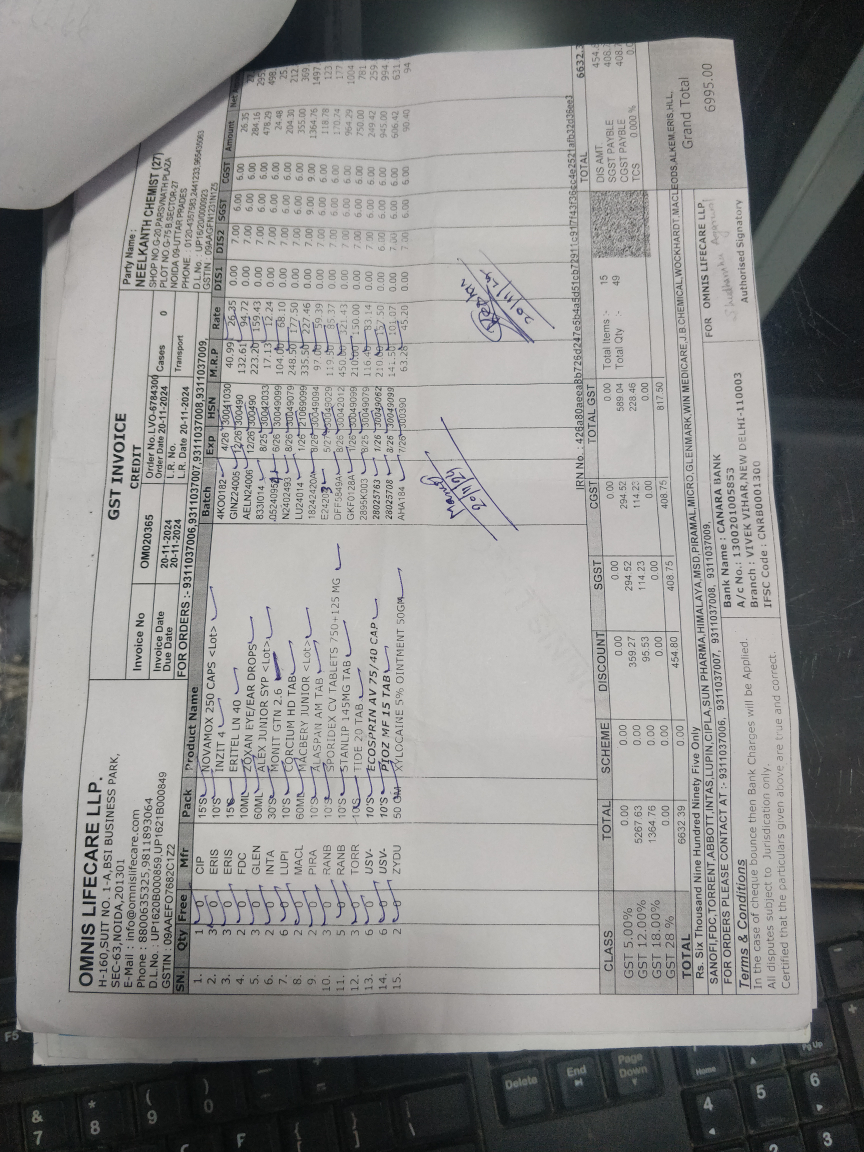 OMNIS LIFECARE LLP.
H-160,SUIT NO. 1-A,BSI BUSINESS PARK,
SEC-63,NOIDA,201301
E-Mail : info@omnislifecare.com
Phone : 8800635325,9811893064
D.L.No. : UP1620B000859,UP1621B000849
GSTIN : 09AAEFO7682C1Z2
GST INVOICE
CREDIT
Invoice No OM020365 Order No. LVO-6784300
Order Date 20-11-2024
Invoice Date 20-11-2024 L.R. No. Cases 0
Due Date 20-11-2024 L.R. Date 20-11-2024 Transport
FOR ORDERS :- 9311037006,9311037007,9311037008,9311037009,
Party Name :
NEELKANTH CHEMIST (27)
SHOP NO.G-20 PARSVNATH PLAZA
PLOT NO G-75 B SECTOR-27
NOIDA 09-UTTAR PRADES
PHONE : 0120-4357583,2441233,
D.L.No. : UP1620/0000923
SN. Qty Free Mfr Pack Product Name Batch Exp HSN M.R.P Rate DIS1 DIS2 SGST CGST Amount
1. 1 0 CIP 15'S NOVAMOX 250 CAPS <Lot> 4KO0182 4/26 30041030 40.99 26.35 0.00 7.00 6.00 6.00 26.35
2. 3 0 ERIS 10'S INZIT 4 GINZ24005 12/26 300490 132.61 94.72 0.00 7.00 6.00 6.00 284.16 295
3. 3 0 ERIS 15'S ERITEL LN 40 AELN24006 12/26 300490 223.20 159.43 0.00 7.00 6.00 6.00 478.29 498
4. 2 0 FDC 10ML ZOXAN EYE/EAR DROPS 8333014 8/25 30042033 17.13 12.24 0.00 7.00 6.00 6.00 24.48 25
5. 3 0 GLEN 60ML ALEX JUNIOR SYP <Lot> 6/26 30049099 104.00 68.10 0.00 7.00 6.00 6.00 204.30 212
6. 2 0 INTA 30'S MONIT GTN 2.6 N2402493 8/26 30049079 248.50 177.50 0.00 7.00 6.00 6.00 355.00 369
7. 6 0 LUPI 10'S CORCIUM HD TAB LU24014 1/26 21069099 335.50 227.46 0.00 7.00 9.00 9.00 1364.76 1497
8. 2 0 MACL 60ML MACBERY JUNIOR <Lot> 18242420A 8/26 30049094 97.00 59.39 0.00 7.00 6.00 6.00 118.78 123
9. 2 0 PIRA 10'S ALASPAN AM TAB 5/27 30049029 119.50 85.37 0.00 7.00 6.00 6.00 170.74 177
10. 3 0 RANB 10'S SPORIDEX CV TABLETS 750+125 MG DFF5849A 8/26 30042012 450.00 321.43 0.00 7.00 6.00 6.00 964.29 1004
11. 5 0 RANB 10'S STANLIP 145MG TAB GKF0128A 1/26 30049099 210.00 150.00 0.00 7.00 6.00 6.00 750.00 781
12. 3 0 TORR 10'S TIDE 20 TAB 2895K003 8/25 30049079 116.40 83.14 0.00 7.00 6.00 6.00 249.42 259
13. 6 0 USV- 10'S ECOSPRIN AV 75/40 CAP 28025763 1/26 30049062 210 157.50 0.00 6.00 6.00 6.00 945.00 994
14. 6 0 USV- 10'S PIOZ MF 15 TAB 28025708 8/26 30049099 141.50 101.07 0.00 7.00 6.00 6.00 606.42 631
15. 2 0 ZYDU 50 GM XYLOCAINE 5% OINTMENT 50GM AHA184 7/26 300390 63.28 45.20 0.00 7.00 6.00 6.00 90.40 94
20/11/24
20/11/24
CLASS TOTAL SCHEME DISCOUNT SGST CGST TOTAL GST
GST 5.00% 0.00 0.00 0.00 0.00 0.00 0.00
GST 12.00% 5267.63 0.00 359.27 294.52 294.52 589.04
GST 18.00% 1364.76 0.00 95.53 114.23 114.23 228.46
GST 28 % 0.00 0.00 0.00 0.00 0.00 0.00
TOTAL 6632.39 0.00 454.80 408.75 408.75 817.50
Total Items :- 15
Total Qty :- 49
TOTAL
DIS AMT.
SGST PAYBLE
CGST PAYBLE
TCS 0.000 %
Grand Total
6995.00
Rs. Six Thousand Nine Hundred Ninety Five Only
SANOFI,FDC,TORRENT,ABBOTT,INTAS,LUPIN,CIPLA,SUN PHARMA,HIMALAYA,MSD,PIRAMAL,MICRO,GLENMARK,WIN MEDICARE,J.B.CHEMICAL,WOCKHARDT,MACLEODS,ALKEM,ERIS,HLL,
FOR ORDERS PLEASE CONTACT AT :- 9311037006, 9311037007, 9311037008, 9311037009,
Terms & Conditions
In the case of cheque bounce then Bank Charges will be Applied.
All disputes subject to Jurisdication only.
Certified that the particulars given above are true and correct.
Bank Name : CANARA BANK
A/c No.: 1300201005853
Branch : VIVEK VIHAR,NEW DELHI-110003
IFSC Code : CNRB0001300
FOR OMNIS LIFECARE LLP.
Authorised Signatory
F5
&
7
*
8
(
9
)
0
F
Delete
End
Page
Down
Home
Pg Up
4
5
6
3